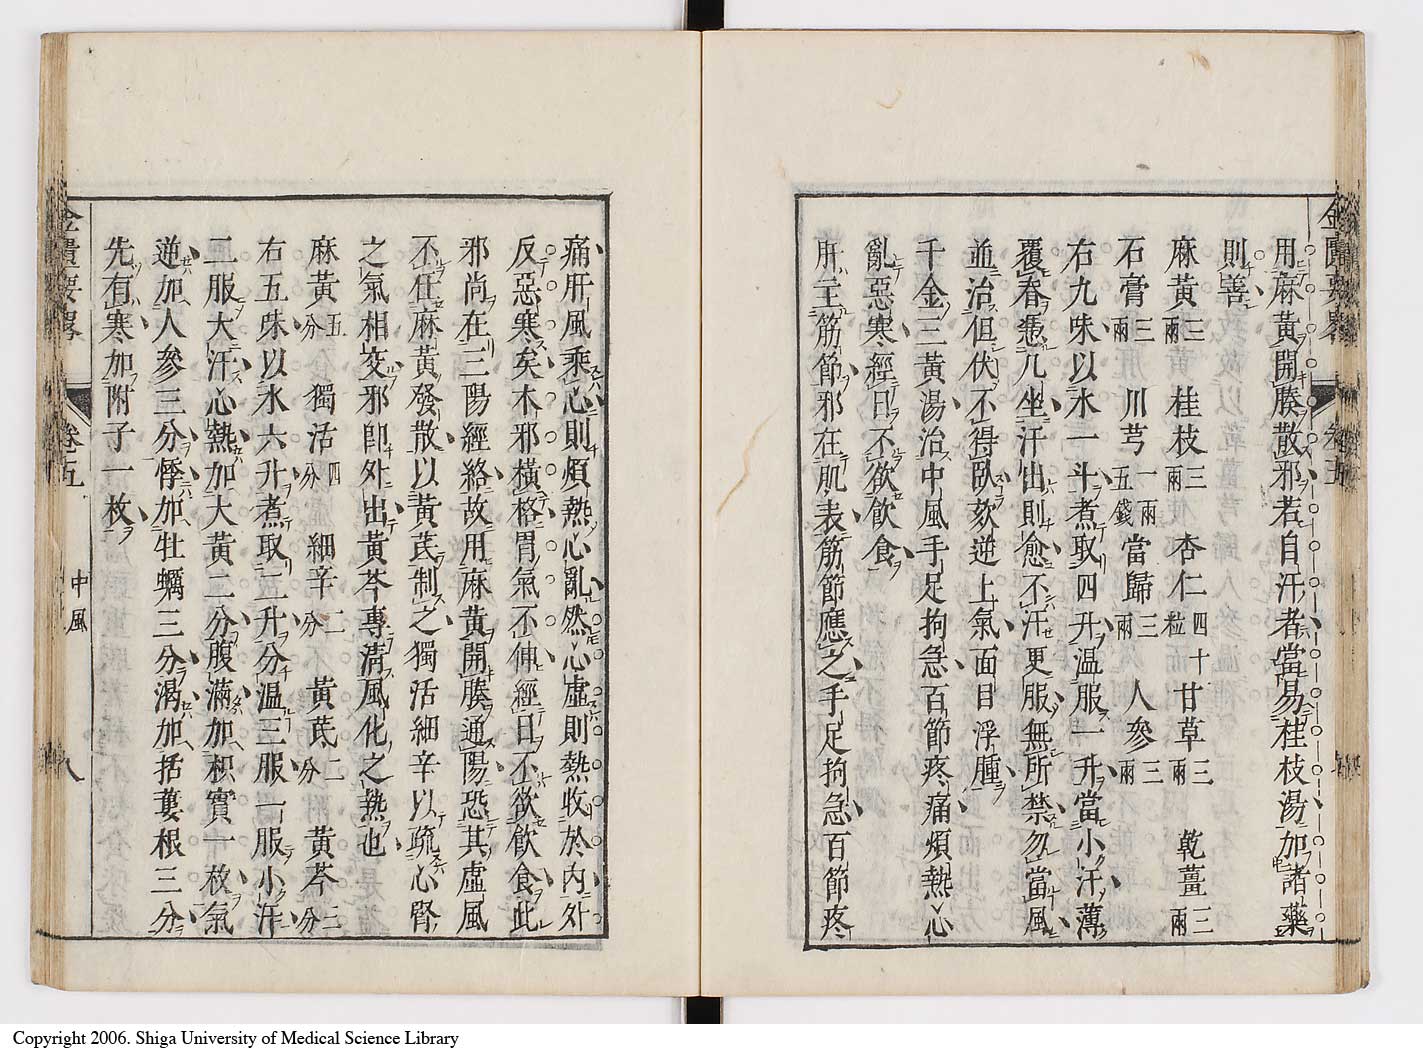 用麻黃開腠散邪若自汗者當易桂枝湯加諸藥
則善
麻黃三兩 桂枝三兩 杏仁四十粒 甘草三兩 乾薑三兩
石膏三兩 川芎一兩五錢 當歸三兩 人參三兩
右九味以水一斗煮取四升温服一升當小汗薄
覆脊憑几坐汗出則愈不汗更服無所禁勿當風
並治但伏不得臥欬逆上氣面目浮腫
千金三黃湯治中風手足拘急百節疼痛煩熱心
亂惡寒經日不欲飲食
肝主筋節邪在肌表筋節應之手足拘急百節疼
痛肝風乘心則煩熱心亂然心虛則熱收於內外
反惡寒矣木邪橫格胃氣不伸經日不欲飲食此
邪尚在三陽經絡故用麻黃開腠通陽恐其虛風
不任麻黃發散以黃芪制之獨活細辛以疏心腎
之氣相交邪卽外出黃芩專清風化之熱也
麻黃五分 獨活四分 細辛二分 黃芪二分 黃芩三分
右五味以水六升煮取二升分温三服一服小汗
二服大汗心熱加大黃二分腹滿加枳實一枚氣
逆加人參三分悸加牡蠣三分渴加括蔞根三分
先有寒加附子一枚
金匱要畧 卷五 中風 八
Copyright 2006. Shiga University of Medical Science Library